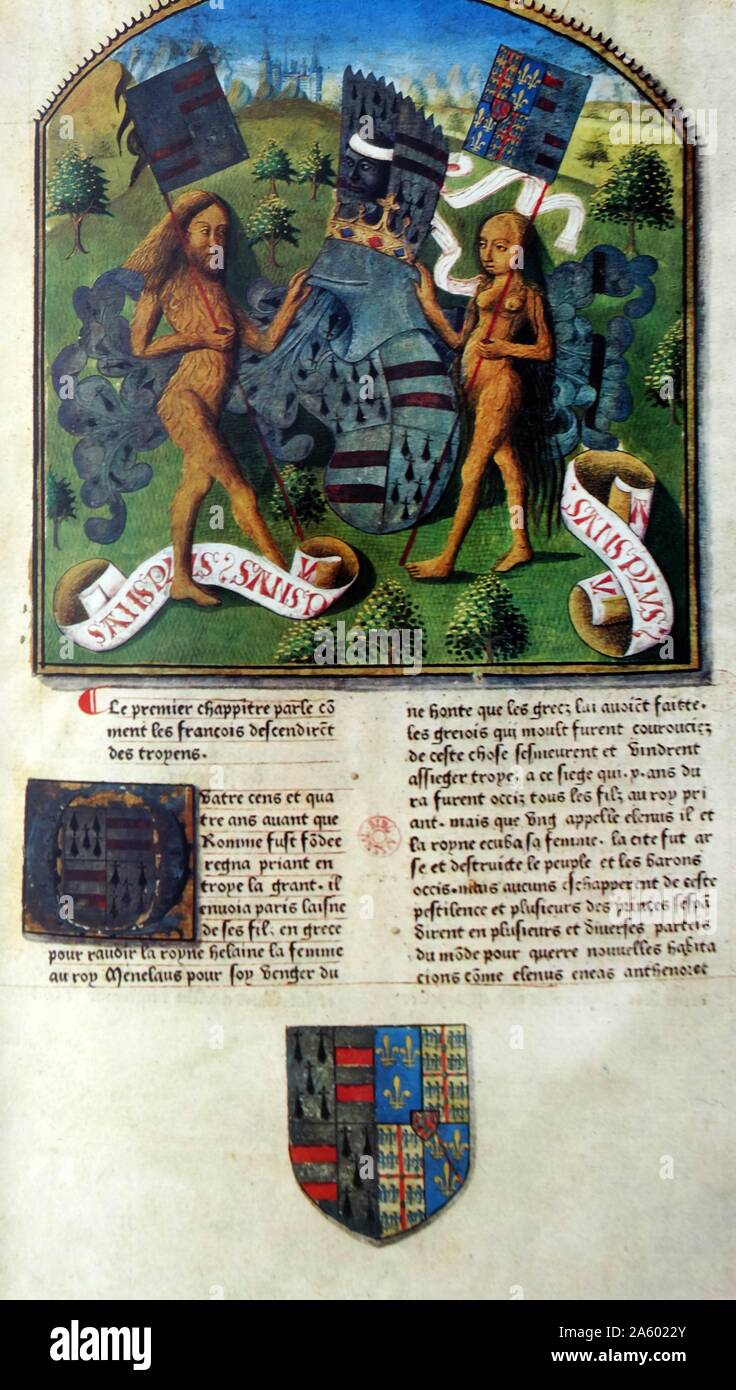 Le premier chappitre parle cō
ment les francois descendirēt
des troyens.
Vatre cens et qua
tre ans auant que
Romme fust fōdee
regna priant en
troye la grant. il
enuoia paris laisne
de ses filz en grece
pour rauir la royne helaine la femme
au roy Menelaus pour soy venger du
ne honte que les grecz lui auoiēt faitte.
les greiois qui moult furent courouciez
de ceste chose sesmeurent et vindrent
assieger troye. a ce siege qui .x. ans du
ra furent occiz tous les filz au roy pri
ant. mais que vng appelle elenus il et
la royne ecuba sa femme. la cite fut ar
se et destruicte le peuple et les barons
occis. mais aucuns eschapperent de ceste
pestilence et plusieurs des princes sespā
dirent en plusieurs et diuerses parties
du mōde pour querre nouuelles habita
cions cōme elenus eneas anthenor et
alamy
Image ID: 2A6022Y
www.alamy.com